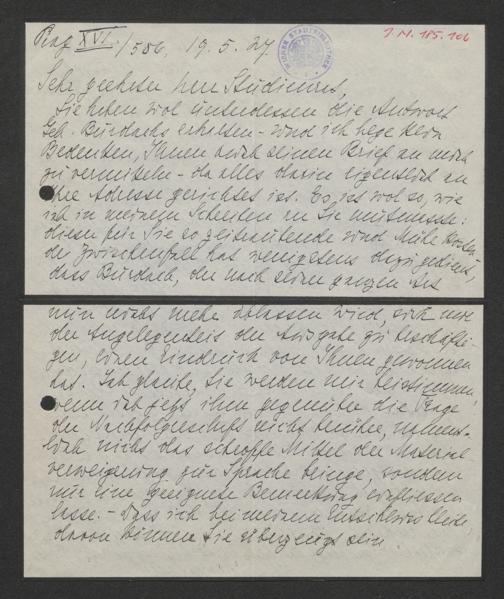 Prag XVI./586, 19. 5. 27.
I. N. 185.106
WIENER STADTBIBLIOTHEK
Sehr geehrter Herr Studienrat,
Sie haben wol unterdessen die Antwort
Geh. Burdachs erhalten – und ich hege kein
Bedenken, Ihnen auch seinen Brief an mich
zu vermitteln – da alles darin eigentlich an
Ihre Adresse gerichtet ist. Es ist wol so, wie
ich in meinem Schreiben an Sie mutmasste:
dieser für Sie so zeitraubende und Mühe kostende
Zwischenfall hat wenigstens dazu gedient,
dass Burdach, der nach seiner ganzen Art
nun nicht mehr ablassen wird, sich mit
der Angelegenheit der Ausgabe zu beschäfti-
gen, einen Eindruck von Ihnen gewonnen
hat. Ich glaube, Sie werden mir beistimmen,
wenn ich jetzt ihm gegenüber die Frage
der Nachfolgerschaft nicht berühre, nament-
lich nicht das schroffe Mittel der Material
verweigerung zur Sprache bringe, sondern
nur eine geeignete Bemerkung einfliessen
lasse. – Dass ich bei meinem Entschluss bleibe,
davon können Sie überzeugt sein